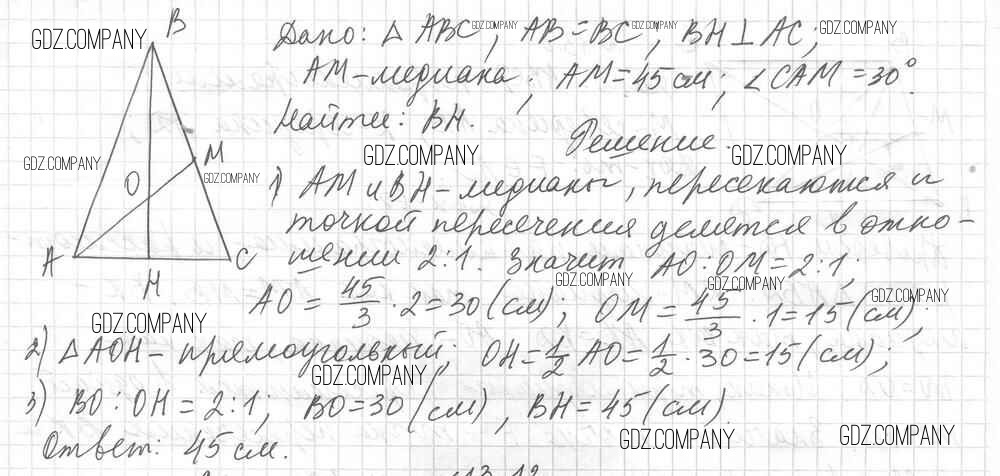 B
GDZ.COMPANY
Дано: △ ABC, GDZ.COMPANY AB = BC, GDZ.COMPANY BH ⊥ AC, GDZ.COMPANY
AM - медиана; AM = 45 см; ∠CAM = 30°.
Найти: BH.
Решение.
GDZ.COMPANY M O GDZ.COMPANY GDZ.COMPANY GDZ.COMPANY
1) AM и BH - медианы, пересекаются и
точкой пересечения делятся в отно-
A C H
шении 2:1. Значит AO : OM = 2:1;
GDZ.COMPANY GDZ.COMPANY GDZ.COMPANY
AO = 45/3 · 2 = 30 (см); OM = 45/3 · 1 = 15 (см);
GDZ.COMPANY
2) △AOH - прямоугольный; OH = 1/2 AO = 1/2 · 30 = 15 (см);
GDZ.COMPANY
3) BO : OH = 2:1; BO = 30 (см), BH = 45 (см)
Ответ: 45 см.
GDZ.COMPANY GDZ.COMPANY